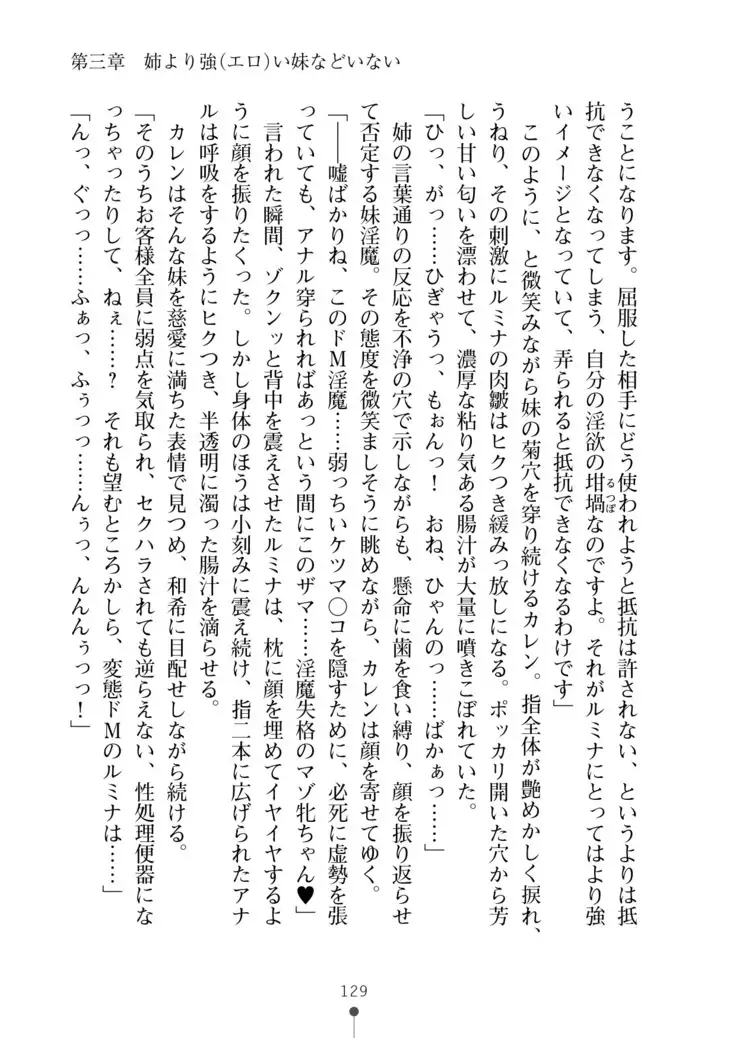 第三章　姉より強(エロ)い妹などいない
うことになります。屈服した相手にどう使われようと抵抗は許されない、というよりは抵
抗できなくなってしまう、自分の淫欲の坩堝なのですよ。それがルミナにとってはより強
いイメージとなっていて、弄られると抵抗できなくなるわけです」
　このように、と微笑みながら妹の菊穴を穿り続けるカレン。指全体が艶めかしく捩れ、
うねり、その刺激にルミナの肉皺はヒクつき緩みっ放しになる。ポッカリ開いた穴から芳
しい甘い匂いを漂わせて、濃厚な粘り気ある腸汁が大量に噴きこぼれていた。
「ひっ、がっ……ひぎゃうっ、もぉんっ！　おね、ひゃんのっ……ばかぁっ……」
　姉の言葉通りの反応を不浄の穴で示しながらも、懸命に歯を食い縛り、顔を振り返らせ
て否定する妹淫魔。その態度を微笑ましそうに眺めながら、カレンは顔を寄せてゆく。
「――嘘ばかりね、このドＭ淫魔……弱っちいケツマ〇コを隠すために、必死に虚勢を張
っていても、アナル穿られればあっという間にこのザマ……淫魔失格のマゾ牝ちゃん♥」
　言われた瞬間、ゾクンッと背中を震えさせたルミナは、枕に顔を埋めてイヤイヤするよ
うに顔を振りたくった。しかし身体のほうは小刻みに震え続け、指二本に広げられたアナ
ルは呼吸をするようにヒクつき、半透明に濁った腸汁を滴らせる。
　カレンはそんな妹を慈愛に満ちた表情で見つめ、和希に目配せしながら続ける。
「そのうちお客様全員に弱点を気取られ、セクハラされても逆らえない、性処理便器にな
っちゃったりして、ねぇ……？　それも望むところかしら、変態ドＭのルミナは……」
「んっ、ぐっっ……ふぁっ、ふぅっっ……んぅっ、んんんぅっっ！」
るつぼ
129